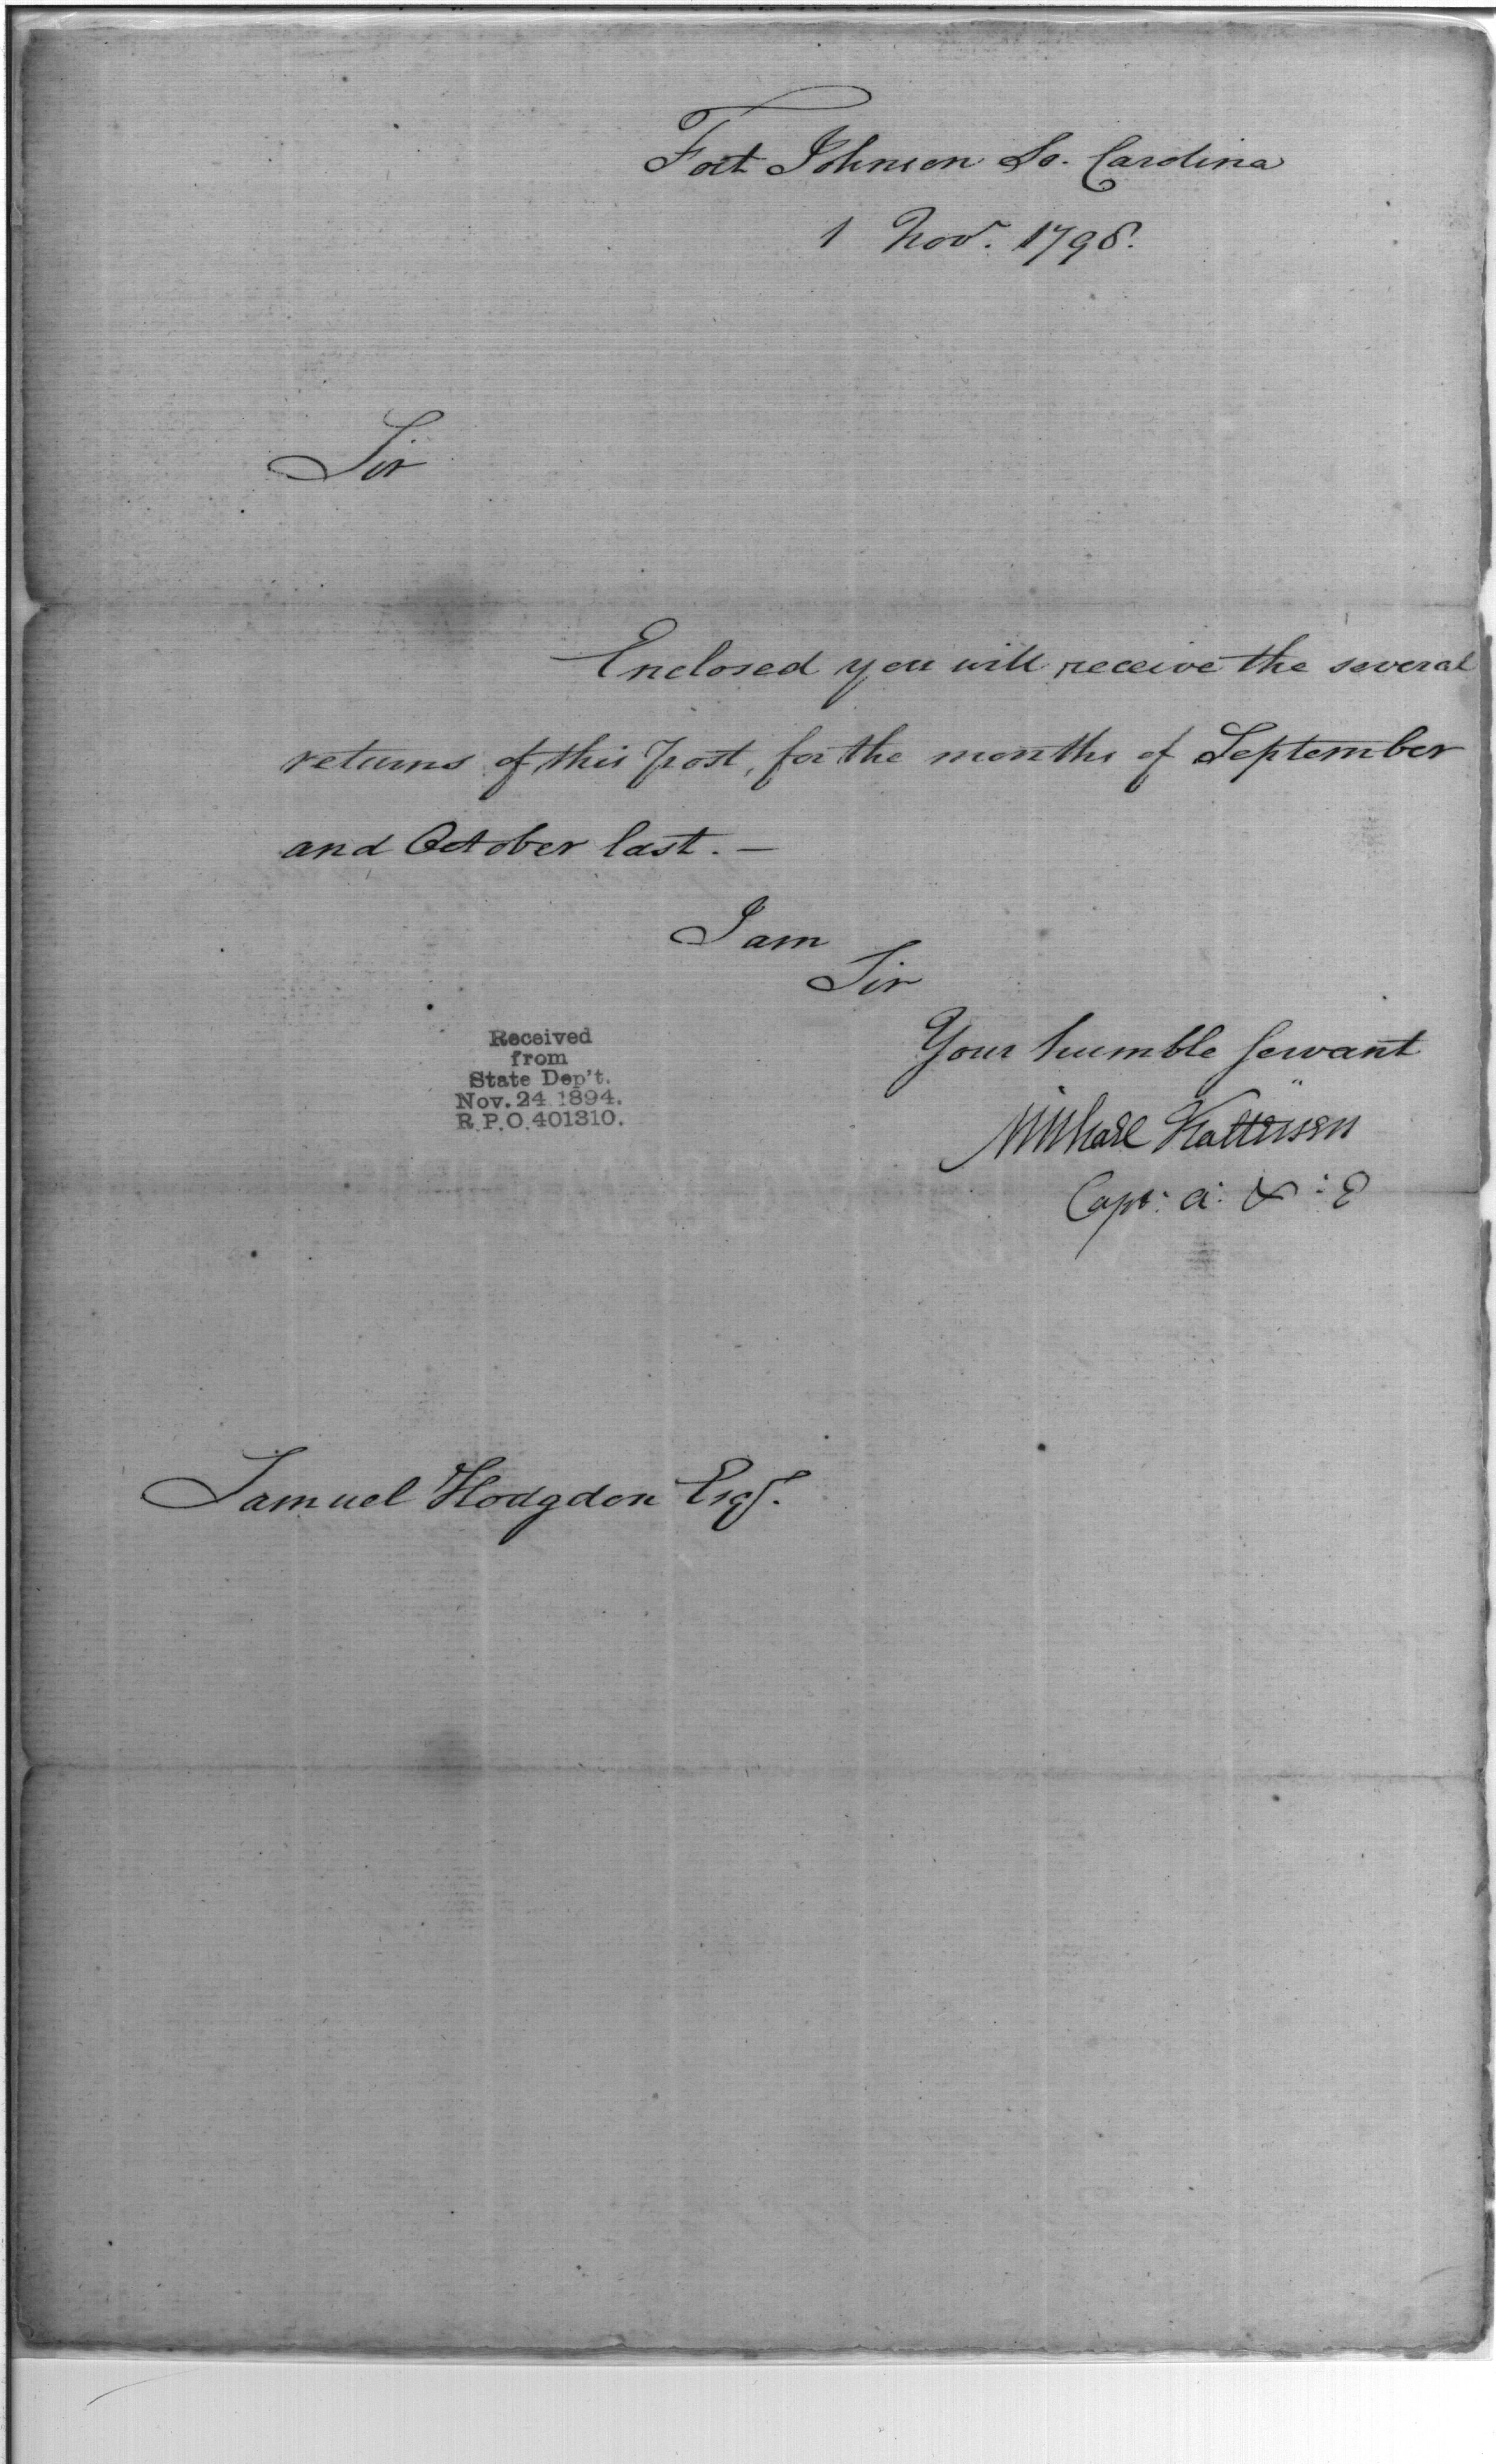 Fort Johnson So. Carolina
1 Nov. 1798.
Sir
Enclosed you will receive the several
returns of this post, for the months of September
and October last. —
I am
Sir
Your humble servant
Michael Kalteisen
Capt: A: & : E
Received
from
State Dep't.
Nov. 24 1894.
R.P.O. 401310.
Samuel Hodgdon Esqr.